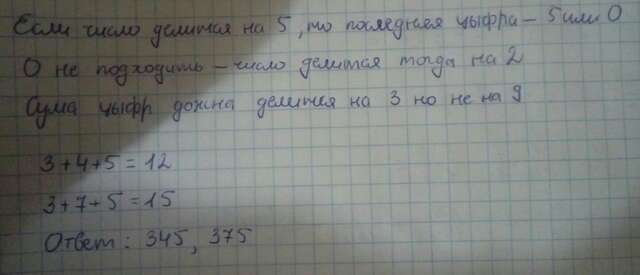 Если число делится на 5, то последнея цыфра – 5 или 0
0 не подходить – число делится тогда на 2
Сума цыфр дожна делится на 3 но не на 9
3+4+5=12
3+7+5=15
Ответ: 345, 375